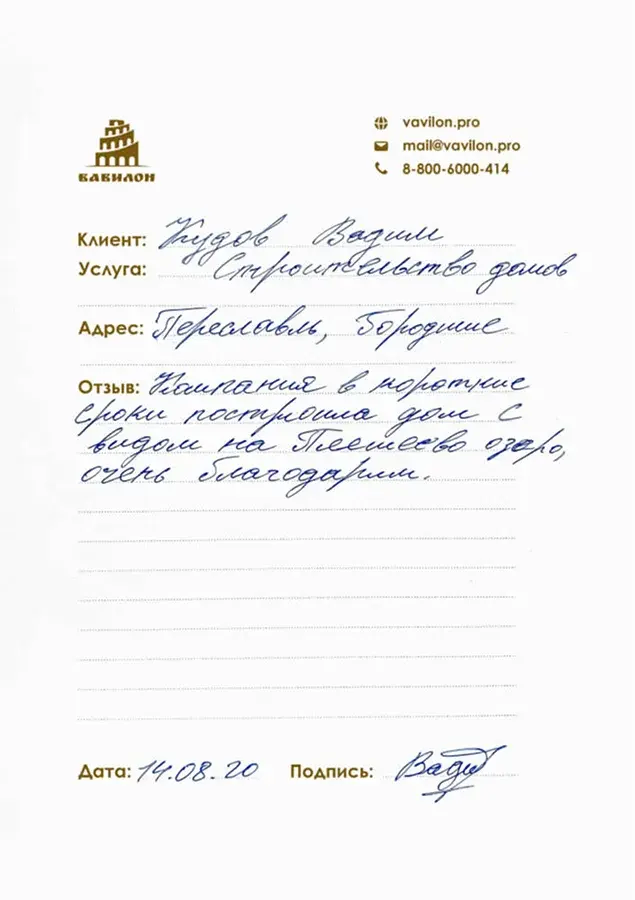 ВАВИЛОН
vavilon.pro
mail@vavilon.pro
8-800-6000-414
Клиент: Кудов Вадим
Услуга: Строительство домов
Адрес: Переславль, Бородшие
Отзыв: Кампания в короткие
сроки построила дом с
видом на Плещеево озаро,
очень благодарим.
Дата: 14.08.20 Подпись: Вади